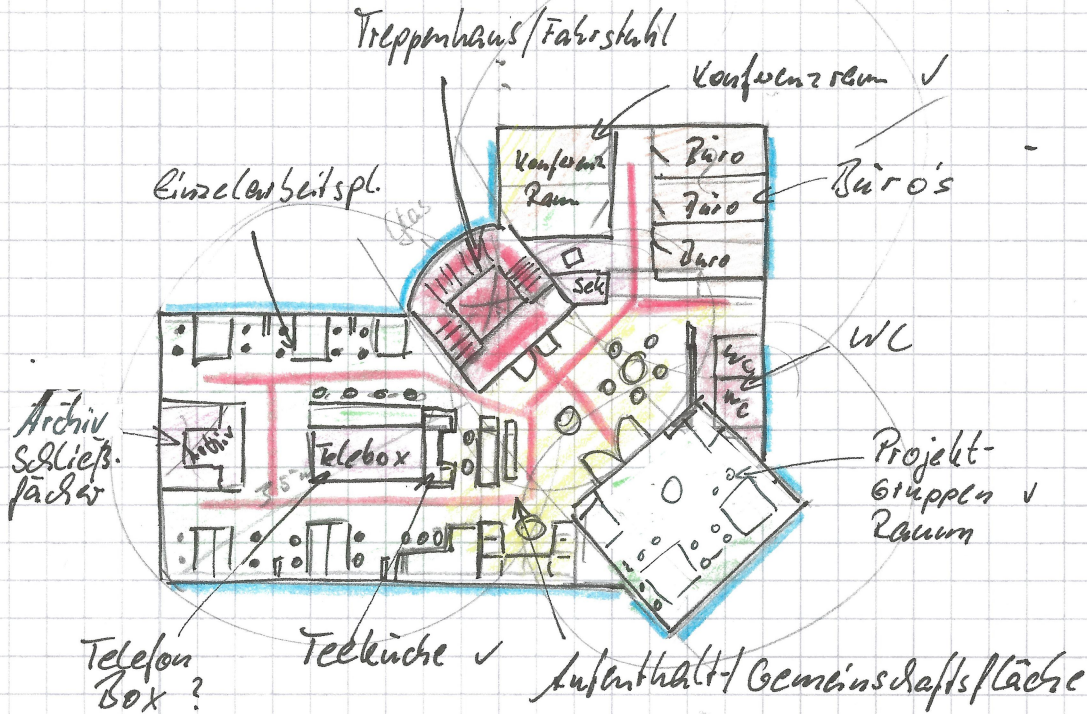 Treppenhaus/Fahrstuhl
Konferenzraum ✓
Konferenz
Raum
Büro
Büro
Büro
Büro's
Einzelarbeitspl.
Glas
Sek
WC
WC
WC
Archiv
Schließ-
fächer
Archiv
Telebox
3,5 m
Projekt-
Gruppen ✓
Raum
Telefon
Box ?
Teeküche ✓
Aufenthalt-/Gemeinschaftsfläche